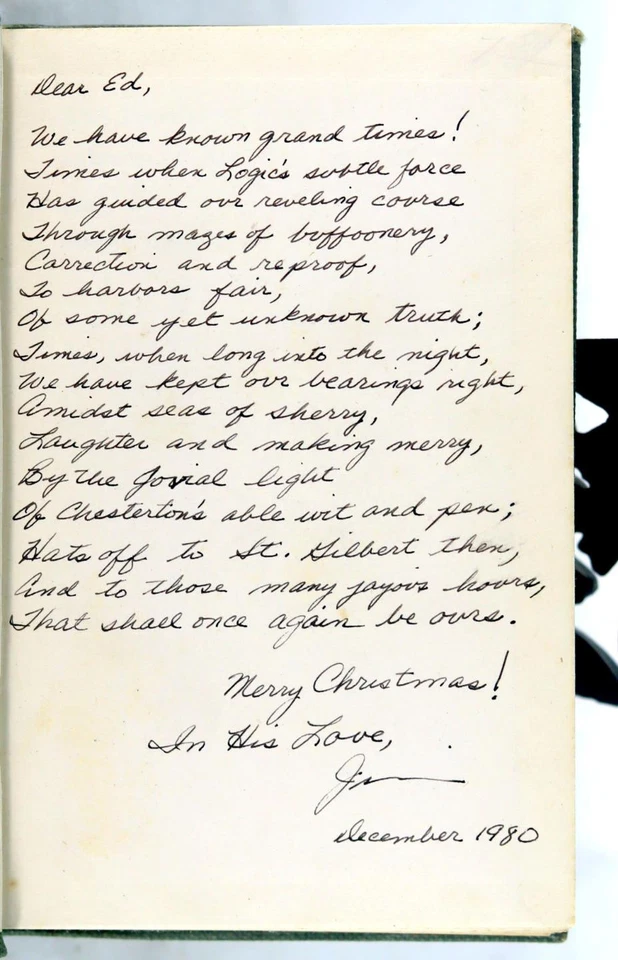 Dear Ed,
We have known grand times!
Times when Logic's subtle force
Has guided our reveling course
Through mazes of buffoonery,
Correction and reproof,
To harbors fair,
Of some yet unknown truth;
Times, when long into the night,
We have kept our bearings right,
Amidst seas of sherry,
Laughter and making merry,
By the Jovial light
Of Chesterton's able wit and pen;
Hats off to St. Gilbert then,
And to those many joyous hours,
That shall once again be ours.
Merry Christmas!
In His Love,
Jim
December 1980